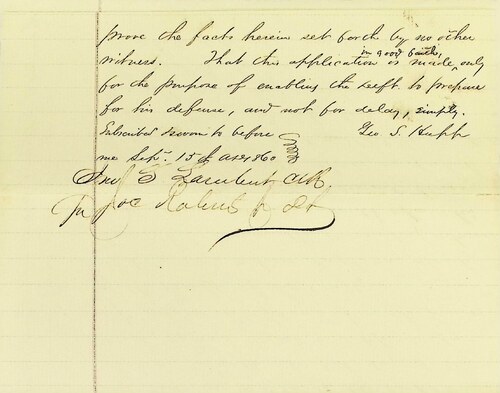 prove the facts herein set forth by no other
witness. That this application is made in good faith, only
for the purpose of enabling the deft. to prepare
for his defense, and not for delay, simply.
Subscribed & sworn to before Geo S. Hupp
me Sept. 15th
Lambert Clk